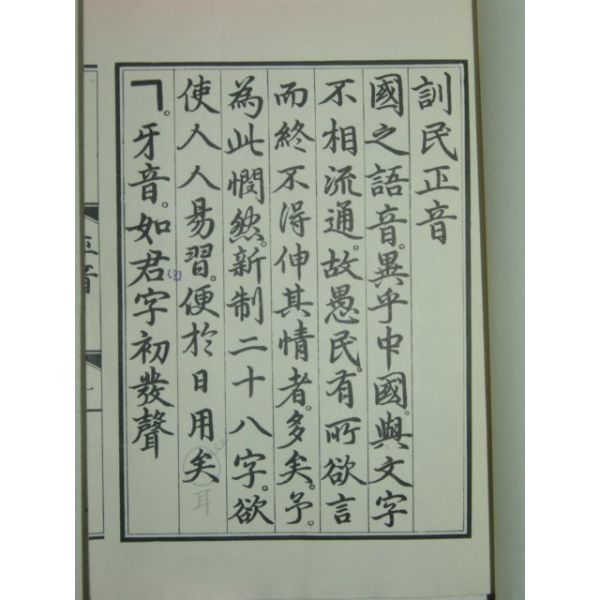 訓民正音
國之語音。異乎中國。與文字
不相流通。故愚民。有所欲言
而終不得伸其情者。多矣。予。
為此憫然。新制二十八字。欲
使人人易習。便於日用矣
耳
ㄱ。牙音。如君字初發聲
正音
一